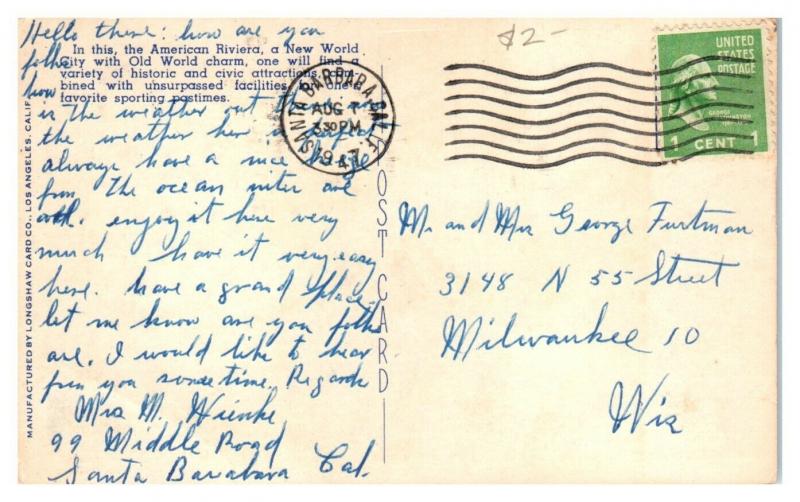 Hello there: how are you
folks
In this, the American Riviera, a New World
City with Old World charm, one will find a
variety of historic and civic attractions, com-
bined with unsurpassed facilities for one's
favorite sporting pastimes.
how is the weather out there
the weather here is perfect
always have a nice
from the ocean
enjoy it here very
much have it very easy
here. have a grand place.
let me know are you folks
are. I would like to hear
from you sometime. Regards
Mrs M. Wienke
99 Middle Road
Santa Barabara Cal.
MANUFACTURED BY LONGSHAW CARD CO., LOS ANGELES, CALIF.
POST CARD
$2-
SANTA BARBARA, CALIF.
AUG 7
3 30 PM
1947
UNITED
STATES
POSTAGE
GEORGE
WASHINGTON
1 CENT 1
Mr and Mrs George Furtman
3148 N 55 Street
Milwaukee 10
Wis